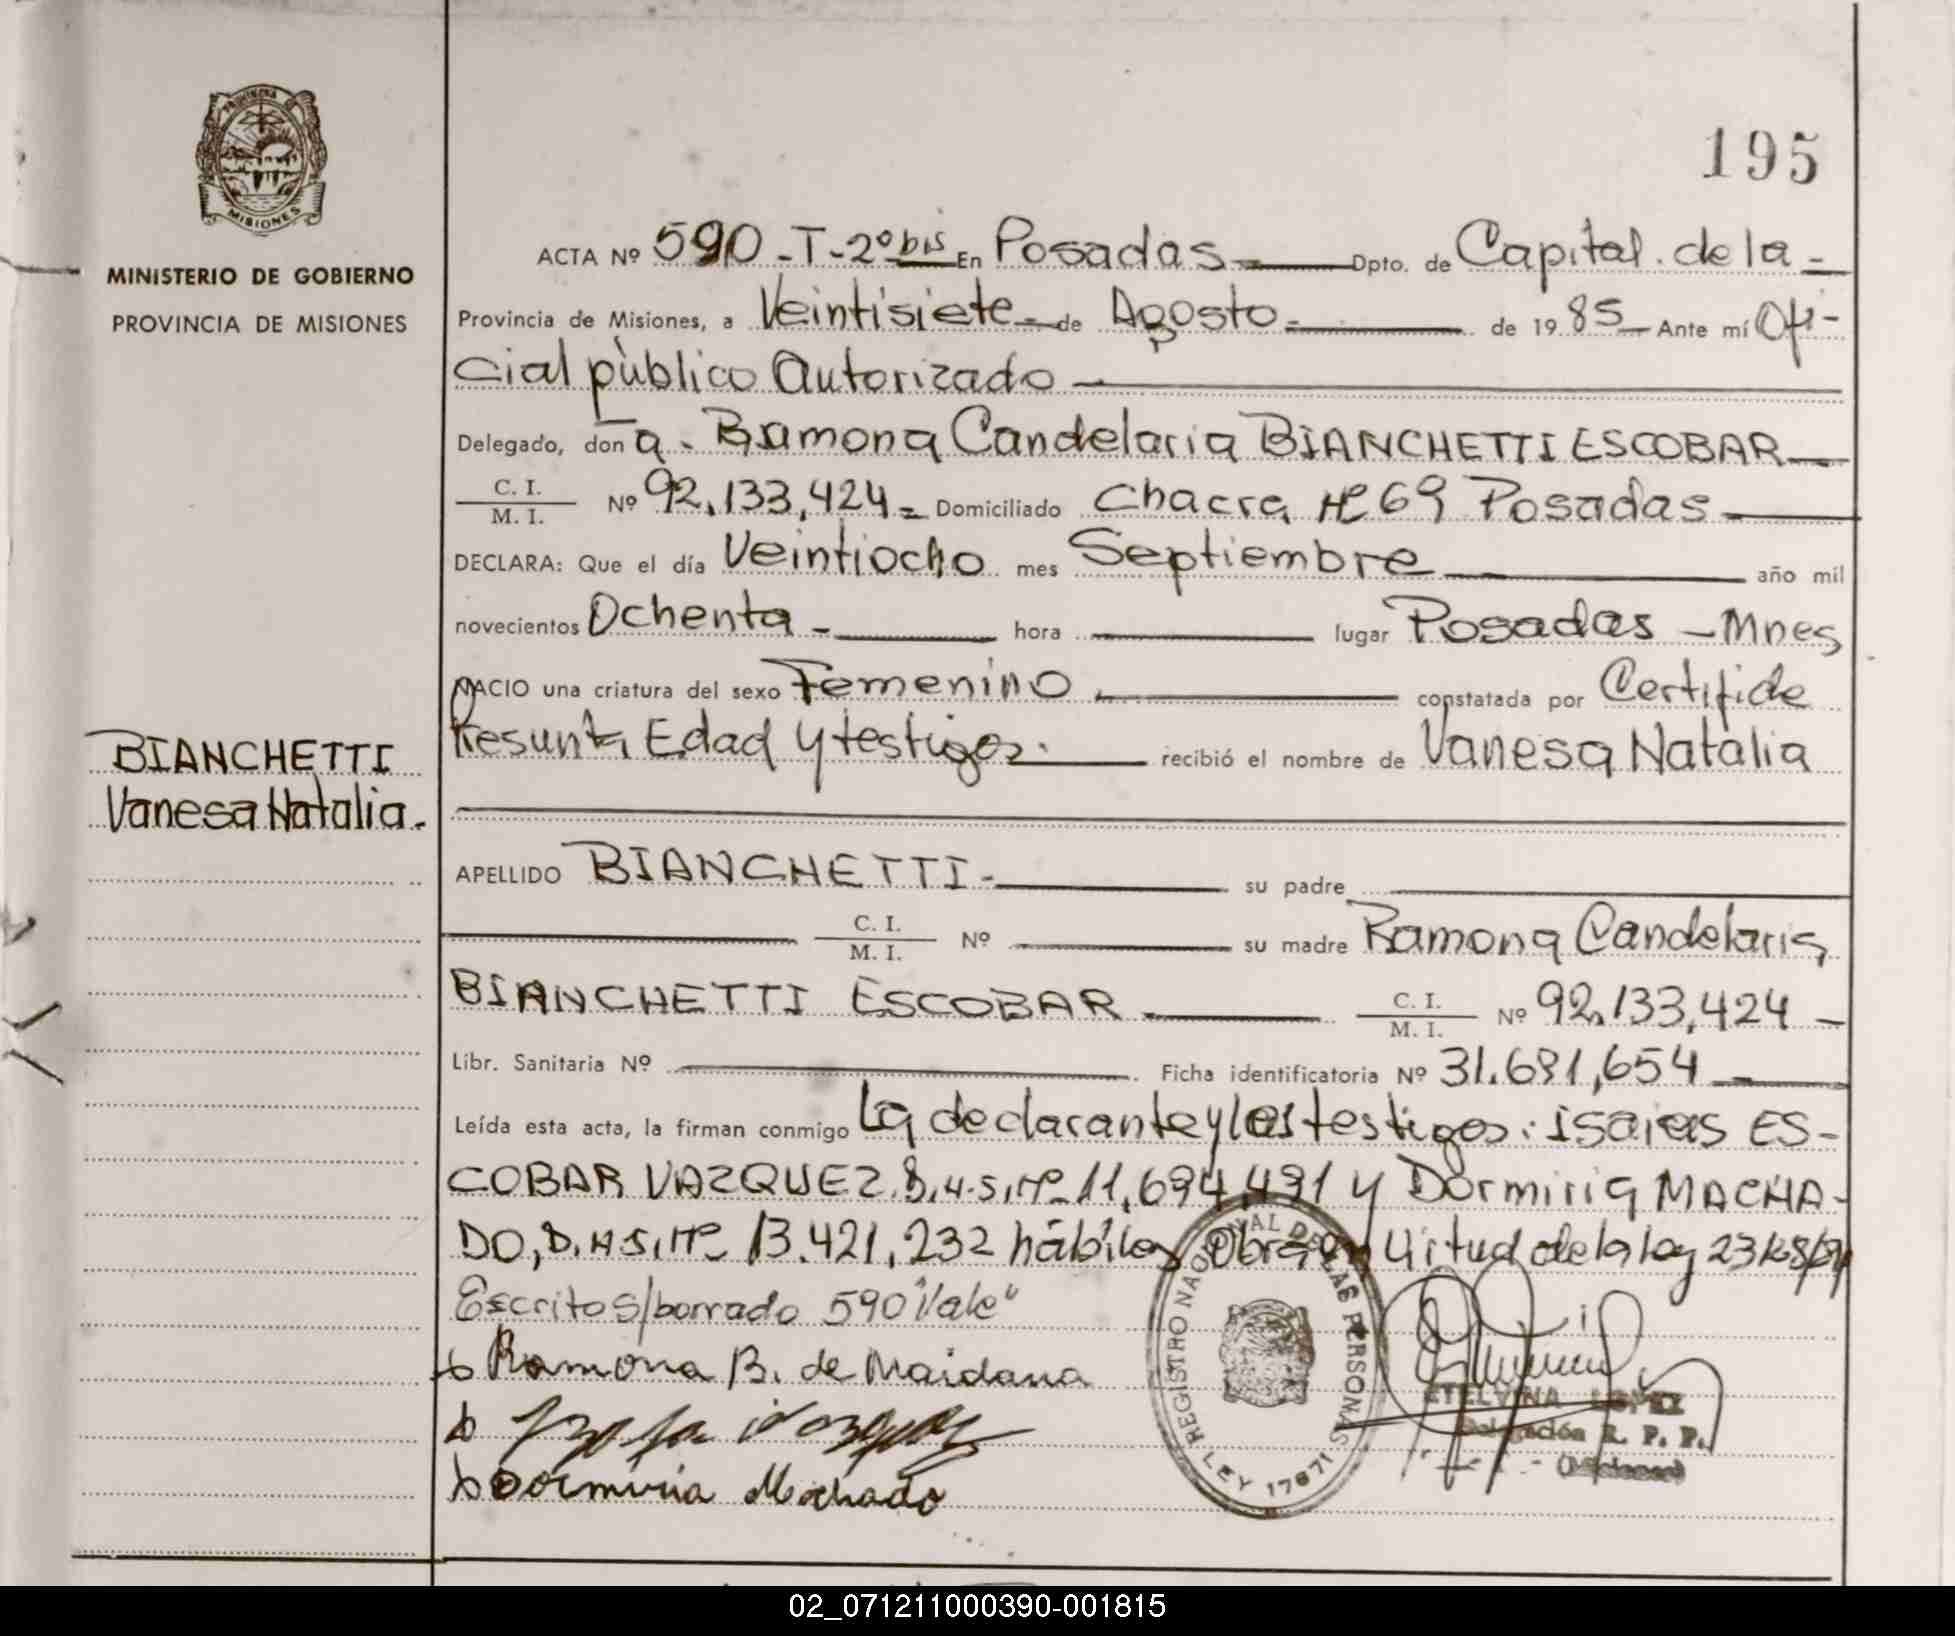 PROVINCIA
MISIONES
MINISTERIO DE GOBIERNO
PROVINCIA DE MISIONES
BIANCHETTI
Vanesa Natalia.
195
ACTA Nº 590-T-2º bis En Posadas Dpto. de Capital. de la
Provincia de Misiones, a Veintisiete de Agosto de 19 85 Ante mí Ofi-
cial pùblico Autorizado
Delegado, don a. Ramona Candelaria BIANCHETTI ESCOBAR
C. I.
M. I. Nº 92.133,424 Domiciliado Chacra Nº 69 Posadas
DECLARA: Que el día Veintiocho mes Septiembre año mil
novecientos Ochenta hora lugar Posadas - Mnes
NACIO una criatura del sexo Femenino constatada por Certif de
Presunta Edad y testigos. recibió el nombre de Vanesa Natalia
APELLIDO BIANCHETTI su padre
C. I.
M. I. Nº su madre Ramona Candelaria
BIANCHETTI ESCOBAR C. I.
M. I. Nº 92.133,424
Libr. Sanitaria Nº Ficha identificatoria Nº 31.691,654
Leída esta acta, la firman conmigo La declarante y los testigos: Isaias ES-
COBAR VAZQUEZ. Nº 11,694,491 y Dormiria MACHA-
DO, Nº 13.421,232 hábiles Obra en Virtud de la ley
Escrito s/borrado 590 "Vale"
Ramona B. de Maidana
Dormiria Machado
REGISTRO NACIONAL DE LAS PERSONAS
LEY 17671
ETELVINA LOPEZ
Delegación R. P. P.
(Misiones)
02_071211000390-001815